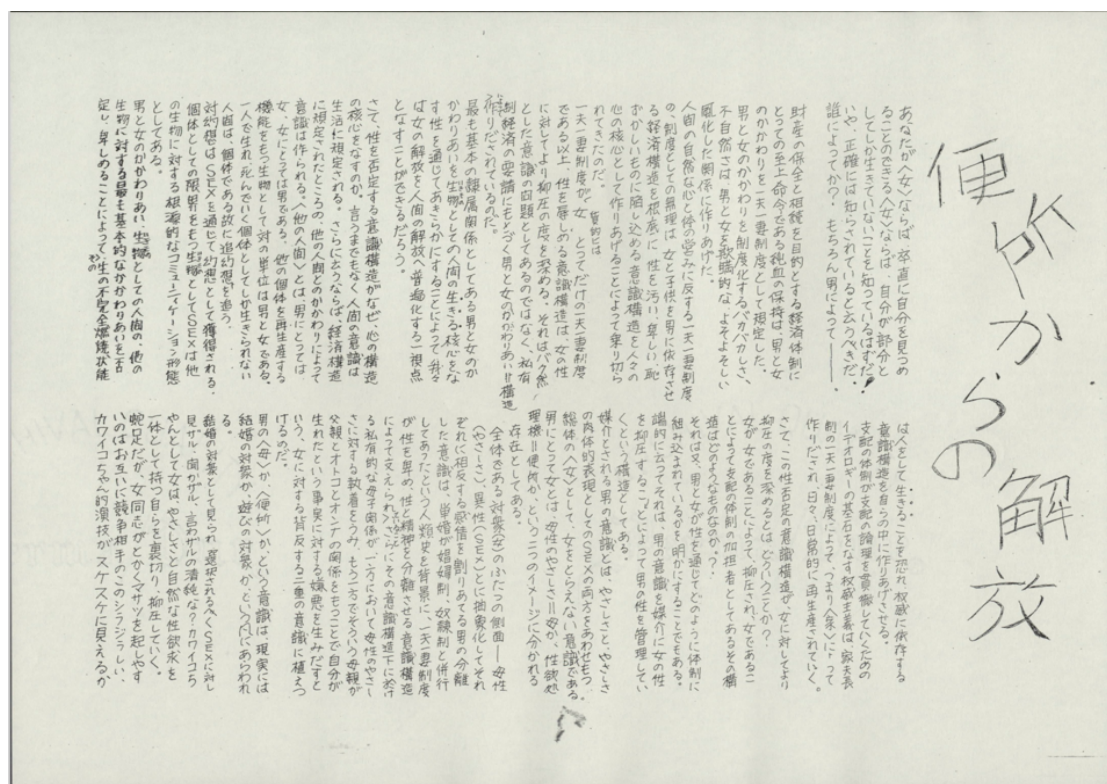 便所からの
解放
あなたが〈女〉ならば、卒直に自分を見つめ
ることのできる〈女〉ならば、自分が部分と
してしか生きていないことを知っているはずだ!
いや、正確には知らされていると云うべきだ。
誰によってか? もちろん男によって――。
財産の保全と相続を目的とする経済体制に
とっての至上命令である純血の保持は、男と女
のかかわりを一夫一妻制度として規定した。
男と女のかかわりを制度化するバカバカしさ、
不自然さは男と女を欺瞞的なよそよそしい
風化した関係に作りあげた。
人間の自然な心と体の営みに反する一夫一妻制度
の、制度としての無理は、女と子供を男に依存させ
る経済構造を根底に、性を汚い、卑しい、恥
ずかしいものに陥し込める意識構造を人々の
心の核心として作りあげることによって乗り切ら
れてきたのだ。
一夫一妻制度が、実質的には女にとってだけの一夫一妻制度
である以上、性を辱しめる意識構造は、女の性
に対してより抑圧の度を深める。それはバク然
とした意識の問題としてあるのではなく、私有
制経済の要請にもとづく男と女のかかわりあい=構造
として作りだされているのだ。
最も基本的隷属関係としてある男と女のか
かわりあいを生物としての人間の生きる核心をな
す性を通じてあきらかにすることによって我々
は女の解放を人間の解放へ普遍化する一視点
となすことができるだろう。
さて、性を否定する意識構造がなぜ、心の構造
の核心をなすのか。言うまでもなく人間の意識は
生活に規定される。さらに云うならば、経済構造
に規定されたところの、他の人間とのかかわりによって
意識は作られる。〈他の人間〉とは、男にとっては
女、女にとっては男である。他の個体を再生産する
機能をもつ生物として対の単位は男と女である。
一人で生れ、死んでいく個体としてしか生きられない
人間は、個体である故に追幻想を追う。
対幻想はSEXを通じて幻想として獲得される。
個体としての限界をもつ生物としてSEXは他
の生物に対する根源的なコミュニケーション形態
としてある。
男と女のかかわりあい、生物としての人間の、他の
生物に対する最も基本的なかかわりあいを否
定し、卑しめることによって、その生の不完全燃焼状態
は人をして生きることを恐れ、権威に依存する
意識構造を自らの中に作りあげさせる。
支配の体制が支配の論理を貫徹していくための
イデオロギーの基石をなす権威主義は、家父長
制の一夫一妻制度によって、つまり〈家〉によって
作りだされ、日々、日常的に再生産されていく。
さて、この性否定の意識構造が、女に対してより
抑圧の度を深めるとは、どういうことか?
女が女であることによって、抑圧され、女であるこ
とによって支配の体制の加担者としてあるその構
造はどのようなものなのか。?
それは又、男と女が性を通じてどのように体制に
組み込まれているかを明かにすることでもある。
論的に云ってそれは、男の意識を媒介に女の性
を抑圧することによって男の性を管理してい
くという構造としてある。
媒介とされる男の意識とは、やさしさと、やさしさ
の肉体的表現としてのSEXの両方をあわせもつ
総体の〈女〉として、女をとらえない意識である。
男にとって女とは、母性のやさしさ=母か、性欲処
理機=便所か、という二つのイメージに分かれる
存在としてある。
全体である対象(女)のふたつの側面――母性
〈やさしさ〉、異性〈SEX〉とに抽象化してそれ
ぞれに相反する感情を割りあてる男の分離
した意識は、単婚が娼婦制、奴隷制と併行
してあったという人類史を背景に、一夫一妻制度
が性を卑め、性と精神を分離させる意識構造
によって支えられ、その意識構造下に於け
る私有的な母子関係が、一方において母性のやさし
さに対する執着をうみ、もう一方でそういう母親が
父親とオトコとオンナの関係をもつことで自分が
生れたという事実に対する嫌悪を生みだすと
いう、女に対する背反する二重の意識に植えつ
けるのだ。
男の〈母〉か、〈便所〉か、という意識は、現実には
結婚の対象か、遊びの対象か、というふうにあらわれ
る。
結婚の対象として見られ、選択されるべくSEXに対し
見ザル、聞カザル、言わザルの清純な? カワイコち
ゃんとして女は、やさしさと自然な性欲求を
一体として持つ自らを裏切り、抑圧していく。
蛇足だが、女同志がとかくマサツを起しやす
いのはお互いに競争相手のこのシラジラしい、
カワイコちゃん的演技がスケスケに見えるか